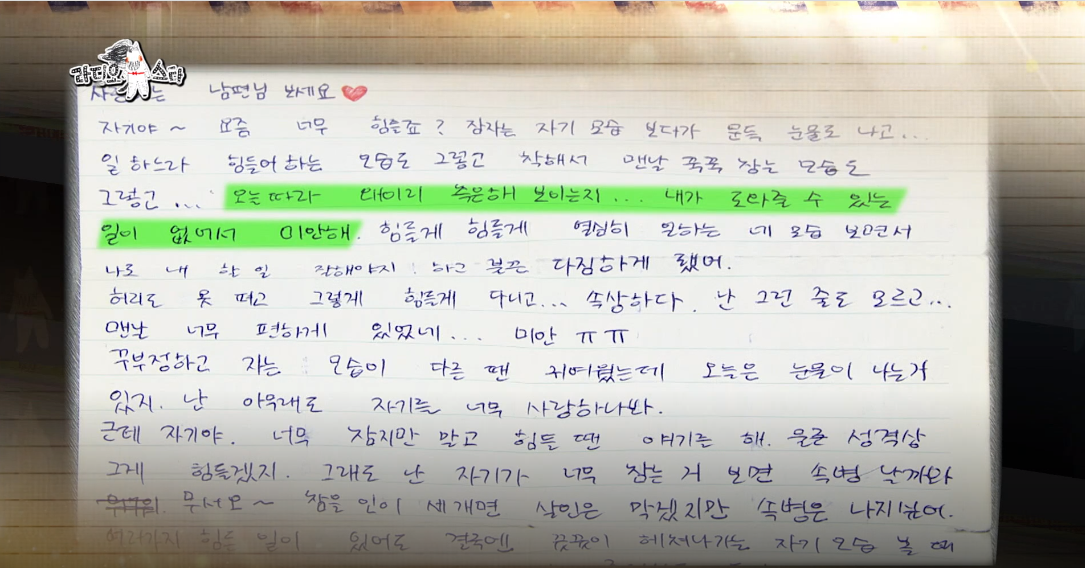 라디오스타
남편님 보세요
자기야 ~ 요즘 너무 힘들죠? 잠자는 자기 모습 보다가 문득 눈물도 나고...
일 하느라 힘들어 하는 모습도 그렇고 착해서 맨날 꾹꾹 참는 모습도
그렇고... 오늘따라 왜이리 측은해 보이는지... 내가 도와줄 수 있는
일이 없어서 미안해. 힘들게 힘들게 열심히 일하는 네 모습 보면서
나도 내 할 일 잘해야지! 하고 불끈 다짐하게 됐어.
허리도 못 펴고 그렇게 힘들게 다니고... 속상하다. 난 그런 줄도 모르고...
맨날 너무 편하게 있었네... 미안 ㅠㅠ
꾸부정하고 자는 모습이 다른 땐 귀여웠는데 오늘은 눈물이 나는거
있지. 난 아무래도 자기를 너무 사랑하나봐.
근데 자기야. 너무 참지만 말고 힘들 땐 얘기를 해. 물론 성격상
그게 힘들겠지. 그래도 난 자기가 너무 참는 거 보면 속병 날까봐
무서요~ 참을 인이 세개면 살인은 막겠지만 속병은 나지싶어.
여러가지 힘든 일이 있어도 결국엔 꿋꿋이 헤쳐나가는 자기 모습 볼 때